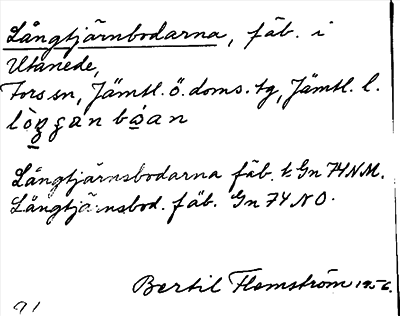 Långtjärnbodarna, fäb. i
Utanede,
Fors sn, Jämtl. ö. doms. tg, Jämtl. l.
Långtjärnsbodarna fäb. t Gn 74 NM.
Långtjärnsbod. fäb. Gn 74 NO.
Bertil Flemström 1956.
91